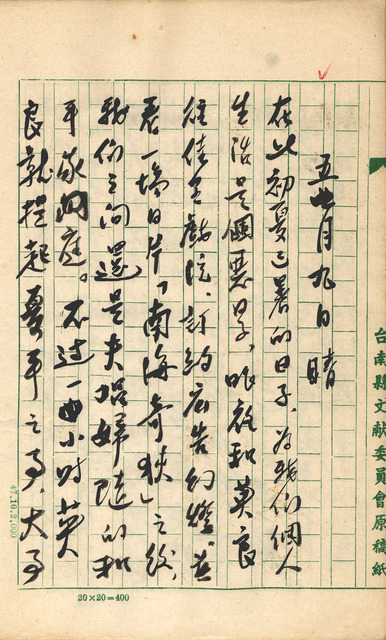 台南縣文献委員會原稿紙
五月九日 晴
在此初夏已暑的日子，为我們個人
生活是個黑日子，昨夜和英良
往佳里戲院，訂約広告幻燈。並
看一場日片「南海奇」之後，
我們之間還是夫唱婦隨的和
平家庭。不过一小时英
良就提起之事，大
47.10.2,000
20×20=400